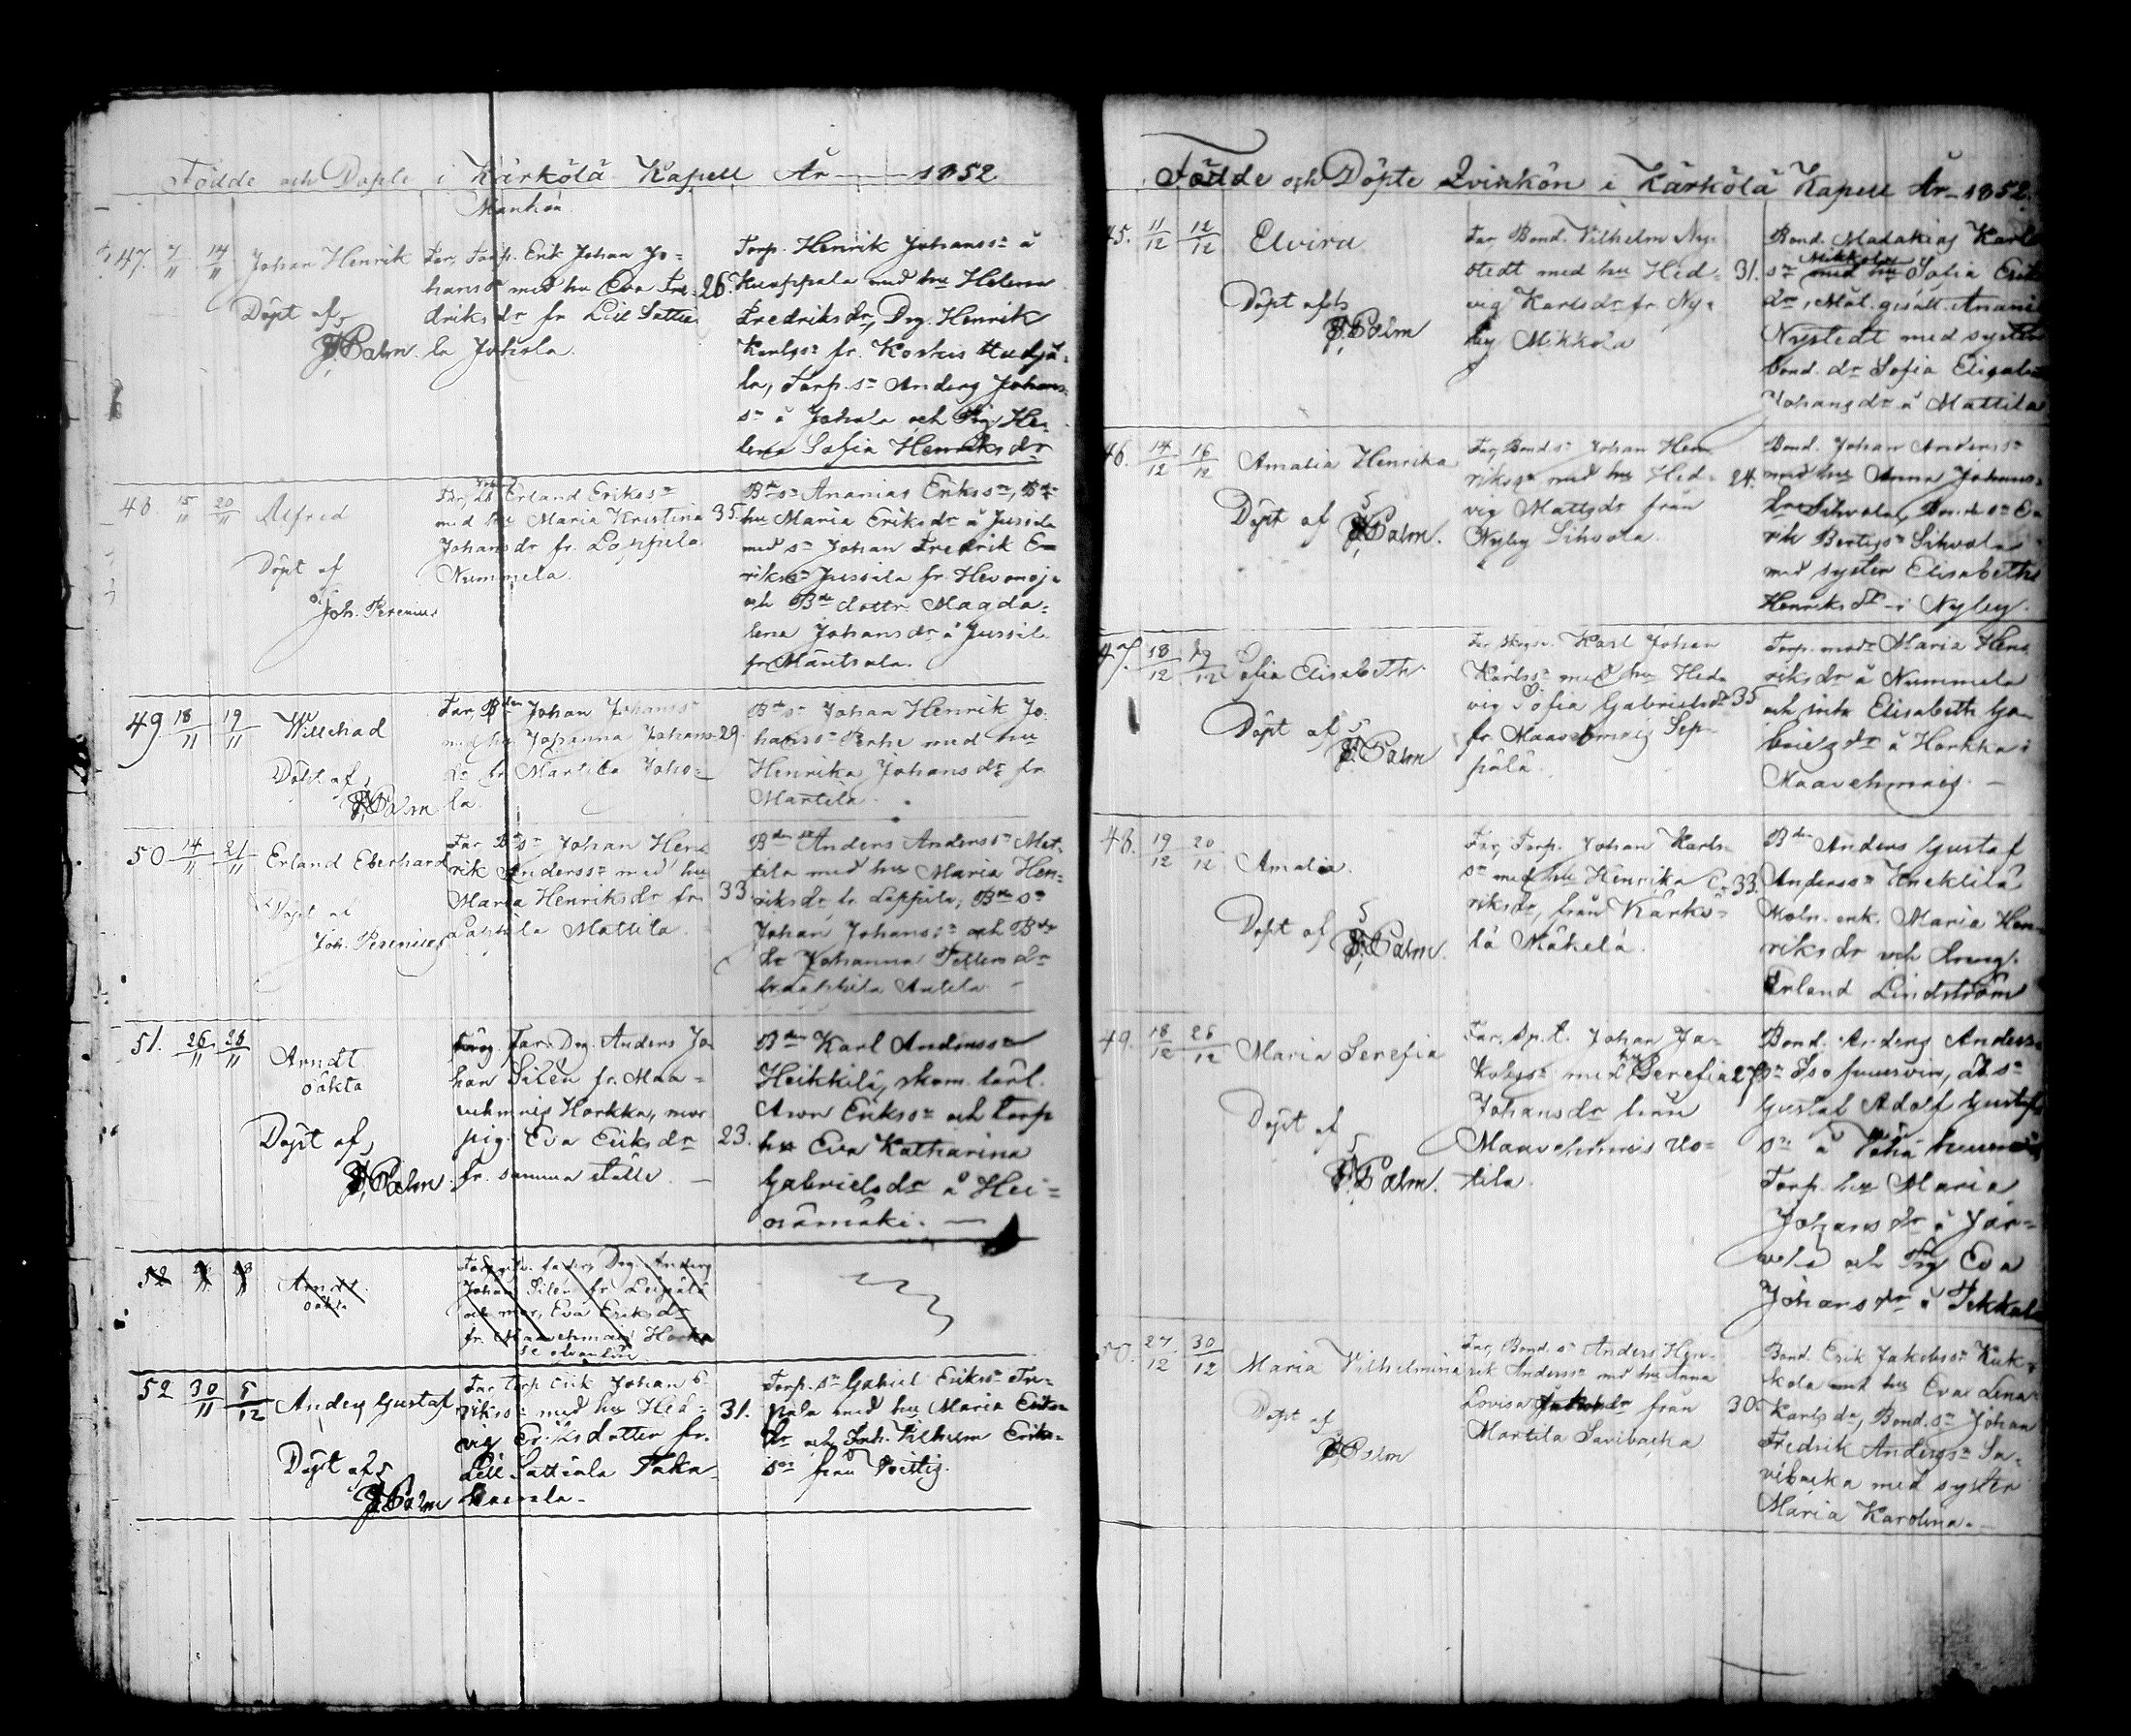 Födde och Döpte i Kärkölä Kapell År 1852
Mankön
47. 7/11 14/11 Johan Henrik
Döpt af
J Palm.
Far, Torp. Erik Johan Jo=
hanss med hu Eva Fre=
driksdr fr Lill Sattia
la Johola.
26.
Torp. Henrik Johanss å
Kuoppala med hu Helena
Fredriksdr, Drg. Henrik
Karlss fr. Koskis
la, Torp. sn Anders Johans
sn å Johola och Pig. He=
lena Sofia Henriksdr
48. 15/11 20/11 Alfred
Döpt af
Joh. Perenius
Far, Erland Erikss
med hu Maria Kristina
Johansdr fr. Lappila
Nummela.
35.
Bdes Ananias Erikss,
hu Maria Eriksdr å Jussila
med sn Johan Fredrik E=
rikss Jussila fr. Hevonoja
och Bde dottr. Magda=
lena Johansdr å Jussila
fr Mäntsala.
49 18/11 19/11 Willehad
Döpt af
J Palm
Far, Bden Johan Johanss
med hu Johanna Johans
dr fr Martila Joho=
la.
29.
Bdes Johan Henrik Jo
hanss med hu
Henrika Johansdr fr
Martila.
50 14/11 21/11 Erland Eberhard
Döpt af
Joh. Perenius
Far Bdes Johan Hen
rik Anderss med hu
Maria Henriksdr fr.
Lappila Mattila.
33
Bden Anders Anderss Mat=
tila med hu Maria Hen=
riksdr fr Lappila, Bde sn
Johan Johanss och Bde
dr Johanna
fr Lappila Antila
51. 26/11 26/11 Arndt
oäkta
Döpt af
J Palm.
Far, Drg. Anders Jo
han Silén fr. Maa=
vehmais Horkka, mor
pig. Eva Eriksdr
fr. samma ställe. —
23.
Bden Karl Anderss
Heikkilä, skom. lärl.
Erikss och torp
hu Eva Katharina
Gabrielsdr å Hei=
osämäki. —
52
Arndt.
oäkta
fader, Drg. Anders
Johan Silén fr Leipälä
och mor, Eva Eriksdr
fr. Maavehmais Horkka
se ofvanföre
52 30/11 5/12 Anders Gustaf
Döpt af
J Palm
Far, Torp Erik Johan E=
rikss med hu Hed=
vig Eriksdotter fr.
Lill Sattiala Taka=
31.
Torp. sn Gabriel Erikss
med hu Maria Eriks
dr och Inh. Vilhelm Eriks=
son från
Födde och Döpte Qvinkön i Kärkölä Kapell År 1852.
45. 11/12 12/12 Elvira
Döpt af
J Palm
Far, Bond. Vilhelm Ny=
stedt med hu Hed=
vig Karlsdr fr. Ny=
by Mikkola
31.
Bond. Malakias Karl
sn Mikkola med hu Sofia Eriks
dr, Mål. gesäll. Anani
Nystedt med syster
bond. dr Sofia Elisabet
Johansdr å Mattila
46. 14/12 16/12 Amalia Henrika
Döpt af
J Palm.
Far, Bonds Johan Hen
rikss med hu Hed=
vig Mattsdr från
Nyby Sihvola.
24.
Bond. Johan Anderss
med hu Anna Johans=
dr Sihvola, Bonde sn E
rik Sihvola
med syster Elisabeth
Henriksdr i Nyby.
47. 18/12 19/12 Sofia Elisabeth
Döpt af
J Palm
Far, Karl Johan
Karlss med hu Hed=
vig Sofia Gabrielsdr
fr. Maavehmais Sep=
pälä.
35
Torp. Maria Hen
riksdr å Nummela
och Elisabeth Ga
brielsdr å Horkka i
Maavehmais. —
48. 19/12 20/12 Amalia.
Döpt af
J Palm.
Far, Torp. Johan Karls
sn med hu Henrika E=
riksdr, från Kärkö=
lä Mäkelä.
33.
Bden Anders Gustaf
Anderss Knektilä
Möln. enk. Maria Hen
riksdr och dreng.
Erland Lindström
49. 18/12 26/12 Maria Serefia
Döpt af
J Palm.
Far, Johan Ja=
kobss med hu Serefia
Johansdr från
Maavehmais Uo=
tila.
27
Bond. Anders Anders
sn Iso
Gustaf Adolf Gustafs
sn å
Torp. hu Maria
Johansdr å Jär=
velä och Pig Eva
Johansdr å Pekkala
50. 27/12 30/12 Maria Vilhelmina
Döpt af
J Palm
Far, Bond. sn Anders Hen=
rik Anderss med hu Anna
Lovisa Jakobsdr från
Martila Savibacka
30.
Bond. Erik Jakobss Kuk=
kola med hu Eva Lena
Karlsdr, Bond. sn Johan
Fredrik Anderss Sa=
vibacka med syster
Maria Karolina. —